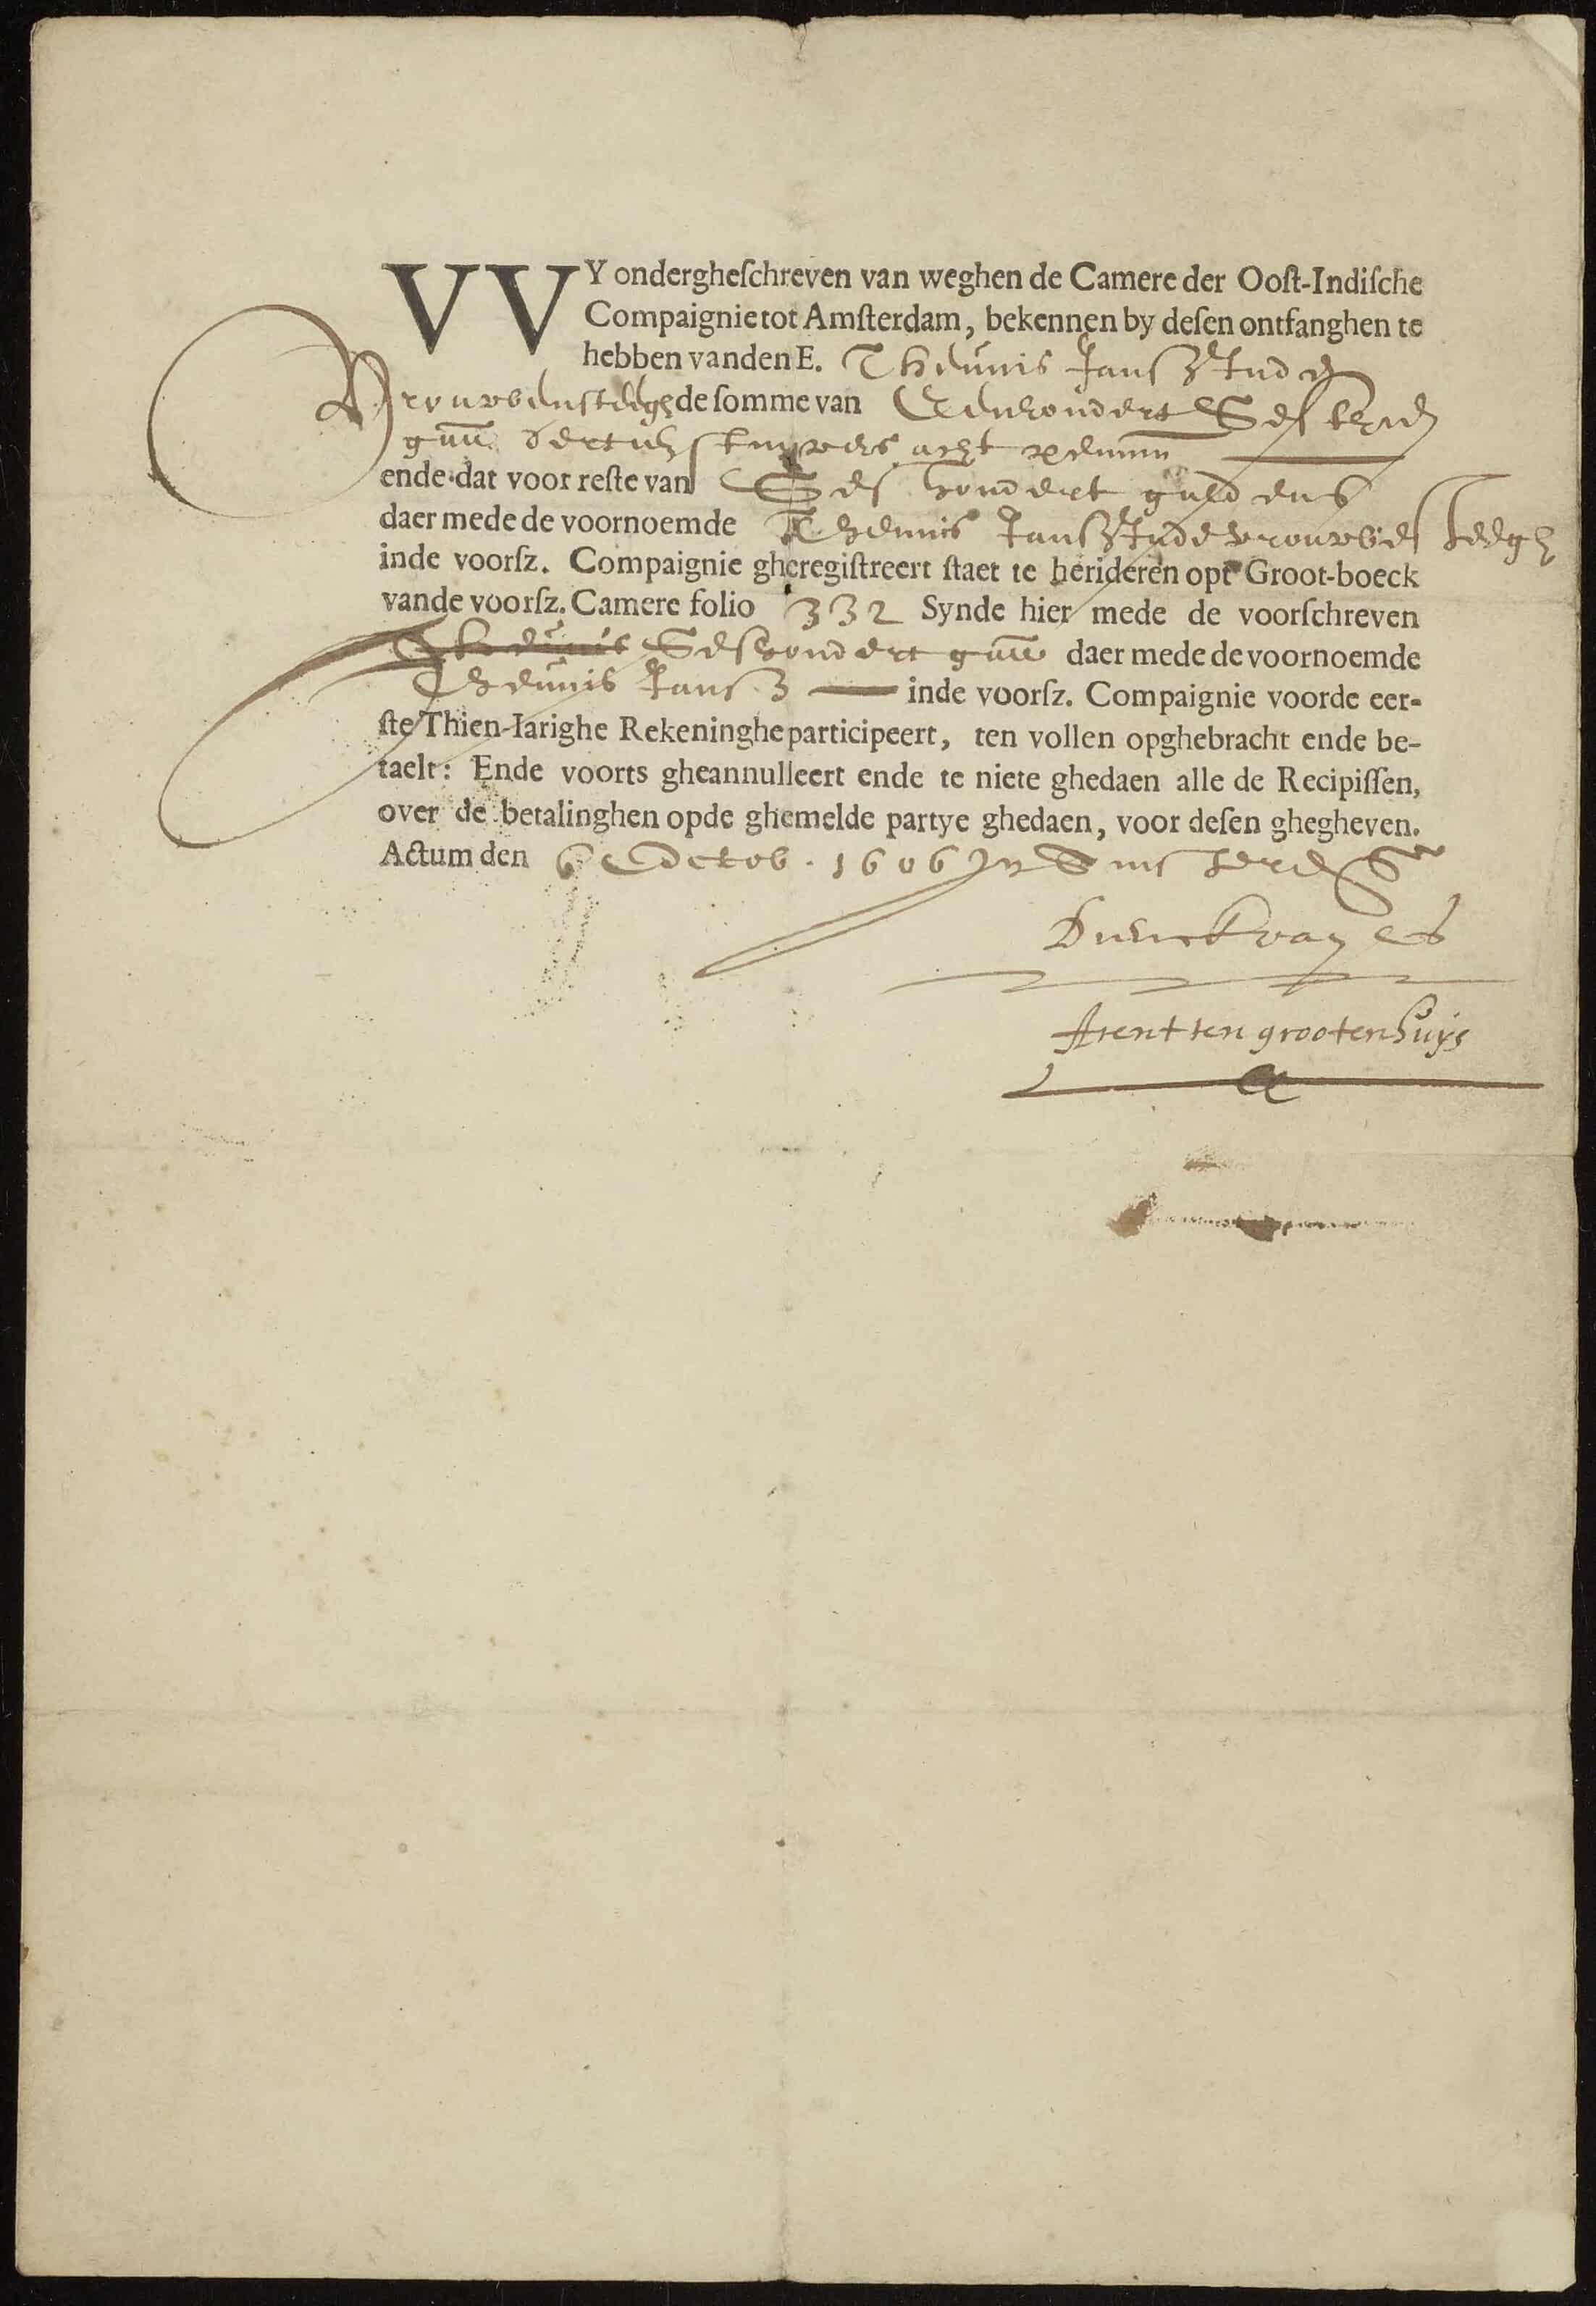 VVY ondergheſchreven van weghen de Camere der Ooſt-Indiſche
Compaignie tot Amſterdam, bekennen by deſen ontfanghen te
hebben vanden E. Theunis Janſz Inde
vrouwenſteegh de ſomme van Eenhondert Seſthien
gũũ dertich ſtuyvers acht penn
ende dat voor reſte van Ses hondert guldens
daer mede de voornoemde Theunis Janſz Inde vrouweſteegh
inde voorſz. Compaignie gheregiſtreert ſtaet te herideren opt Groot-boeck
vande voorſz. Camere folio 332 Synde hier mede de voorſchreven
Theunis Seshondert gũũ daer mede de voornoemde
Theunis Janſz inde voorſz. Compaignie voorde eer-
ſte Thien-Iarighe Rekeninghe participeert, ten vollen opghebracht ende be-
taelt: Ende voorts gheannulleert ende te niete ghedaen alle de Recipiſſen,
over de betalinghen opde ghemelde partye ghedaen, voor deſen ghegheven.
Actum den 6 Octob. 1606 In Amſterd
Dirck van Os
Arent ten grootenhuys